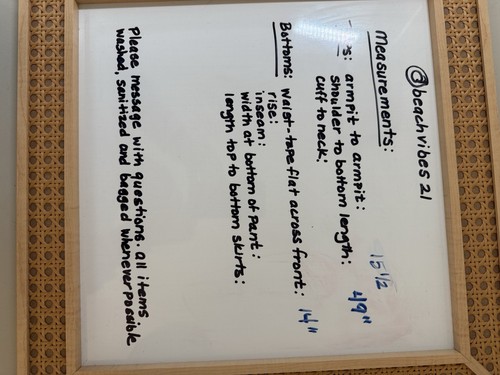 @beachvibes 21
Measurements:
armpit to armpit: 15 1/2
Shoulder to bottom length: 49"
Cuff to neck:
Bottoms: Waist-tape flat across front: 14"
rise:
inseam:
width at bottom of pant:
length top to bottom skirts:
Please message with questions. all items
washed, sanitized and bagged whenever possible